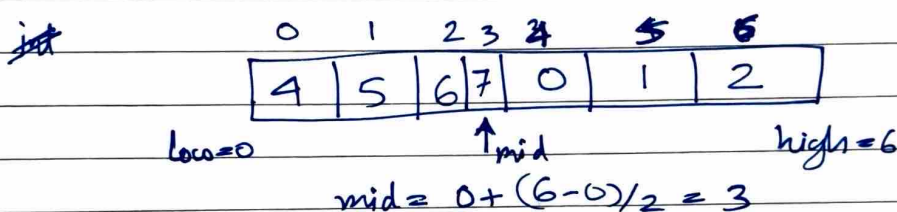 int 0 1 2 3 4 5 6
4 5 6 7 0 1 2
low=0 mid high=6
mid = 0+(6-0)/2 = 3